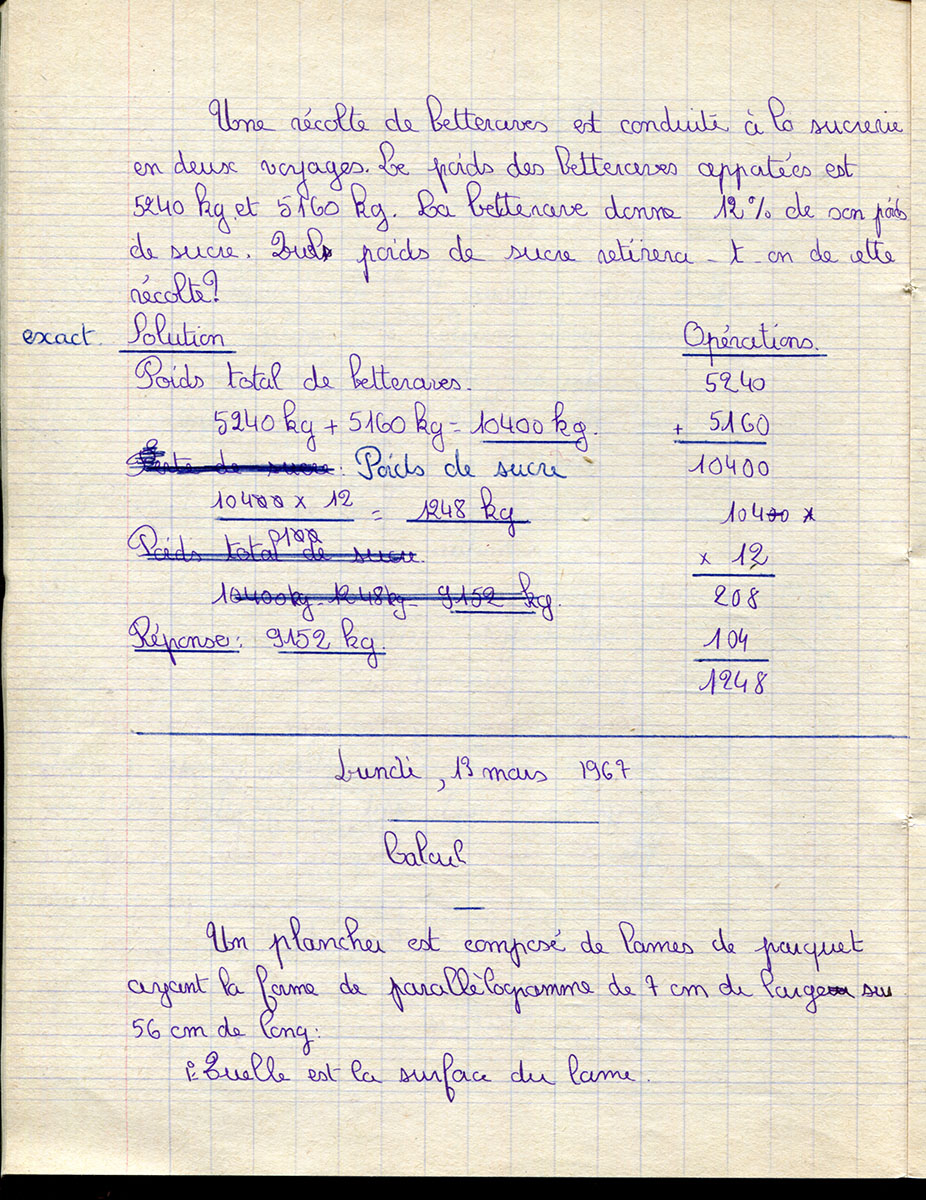 Une récolte de betteraves est conduite à la sucrerie
en deux voyages. Le poids des betteraves appatées est
5240 kg et 5160 kg. La betterave donne 12% de son poids
de sucre. Quel poids de sucre retirera-t-on de cette
récolte?
exact. Solution Opérations.
Poids total de betteraves. 5240
5240 kg + 5160 kg = 10400 kg. + 5160
de sucre: Poids de sucre 10400
10400 x 12 = 1248 kg 10400 x
100
Poids total de sucre. x 12
10400kg - 1248kg = 9152 kg. 208
Réponse: 9152 kg. 104
1248
Lundi, 13 mars 1967
Calcul
Un plancher est composé de lames de parquet
ayant la forme de parallèlogramme de 7 cm de large sur
56 cm de long:
1: Quelle est la surface du lame.